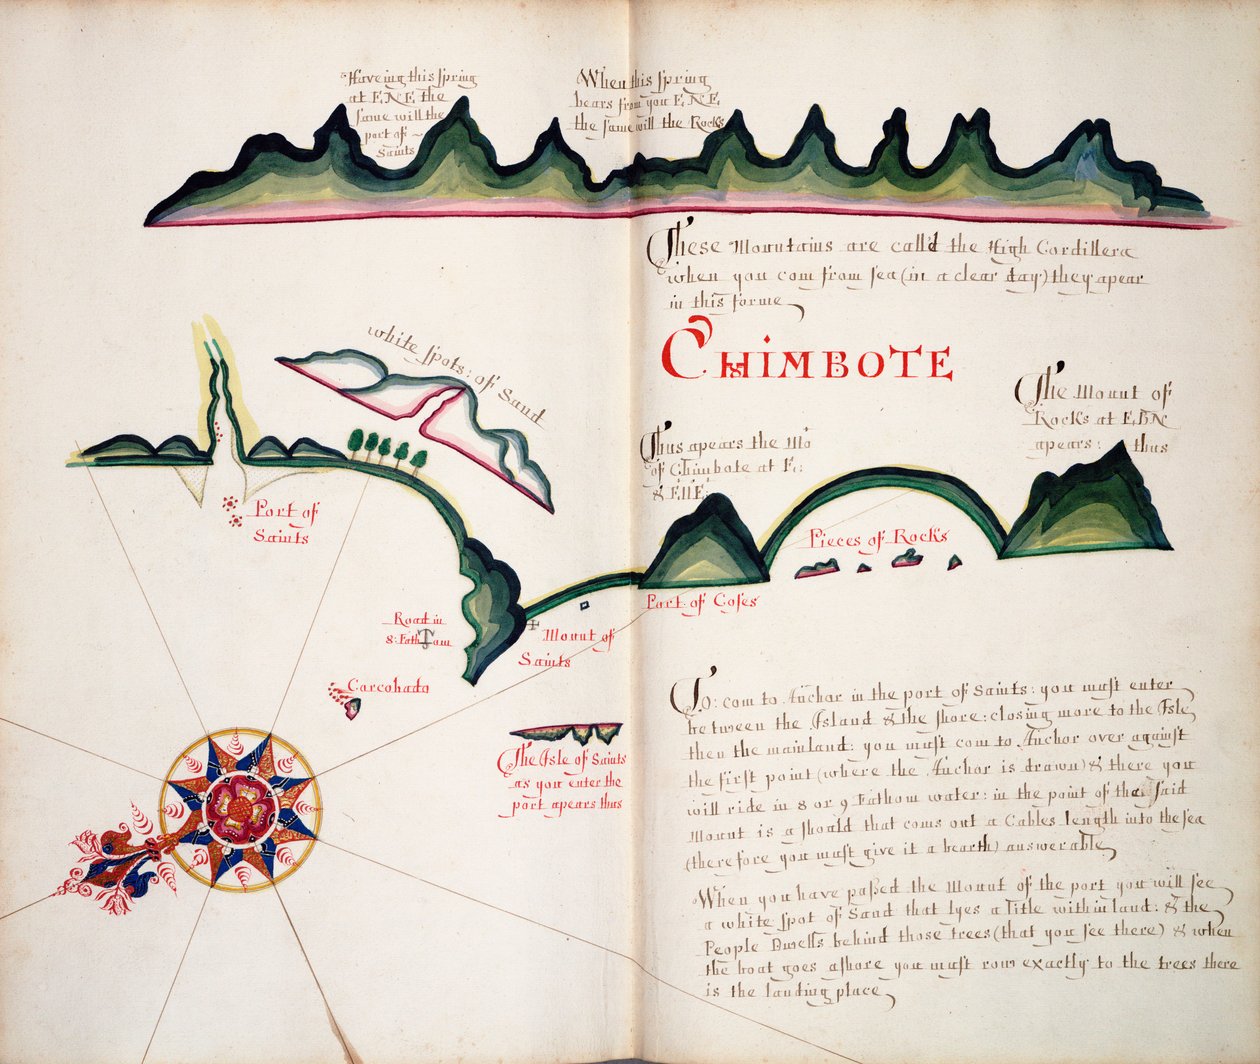 Haveing this spring
at E.N.E. the
same will the
port of ~
Saints
When this spring
bears from you E.N.E.
the same will the Rocks
These Mountains are call'd the High Cordillera
when you com from sea (in a clear day) they apear
in this forme
CHIMBOTE
white spots: of Sand
The Mount of
Rocks at EBN
apears: thus
Thus apears the Mo
of Chimbote at E:
& ENE:
Port of
Saints
Pieces of Rocks
Port of Coses
Road in
8: Fathom
Mount of
Saints
Carcohada
The Isle of Saints
as you enter the
port apears thus
To: com to Anchor in the port of Saints: you must enter
between the Island & the shore: closing more to the Isle
then the mainland: you must com to Anchor over against
the first point (where the Anchor is drawn) & there you
will ride in 8 or 9 Fathom water: in the point of the said
Mount is a shoald that coms out a Cables length into the sea
(therefore you must give it a bearth) answerable
When you have passed the Mount of the port you will see
a white spot of Sand that lyes a litle within land: & the
People Dwells behind those trees (that you see there) & when
the boat goes ashore you must row exactly to the trees there
is the landing place